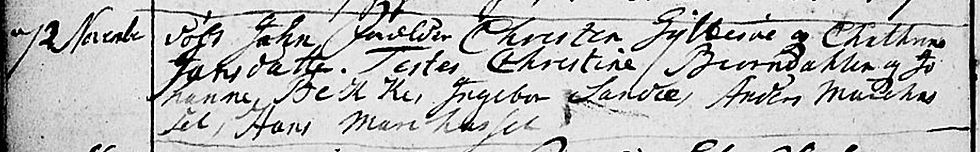 12 November døbt John, Forældre Christen Gylterie og Cathrine
Jansdatter. Testes Christine Biorndahlen og Jo
hanne Bekke, Ingebor Landre, Anders Marchus
sel, Hans Marchussel